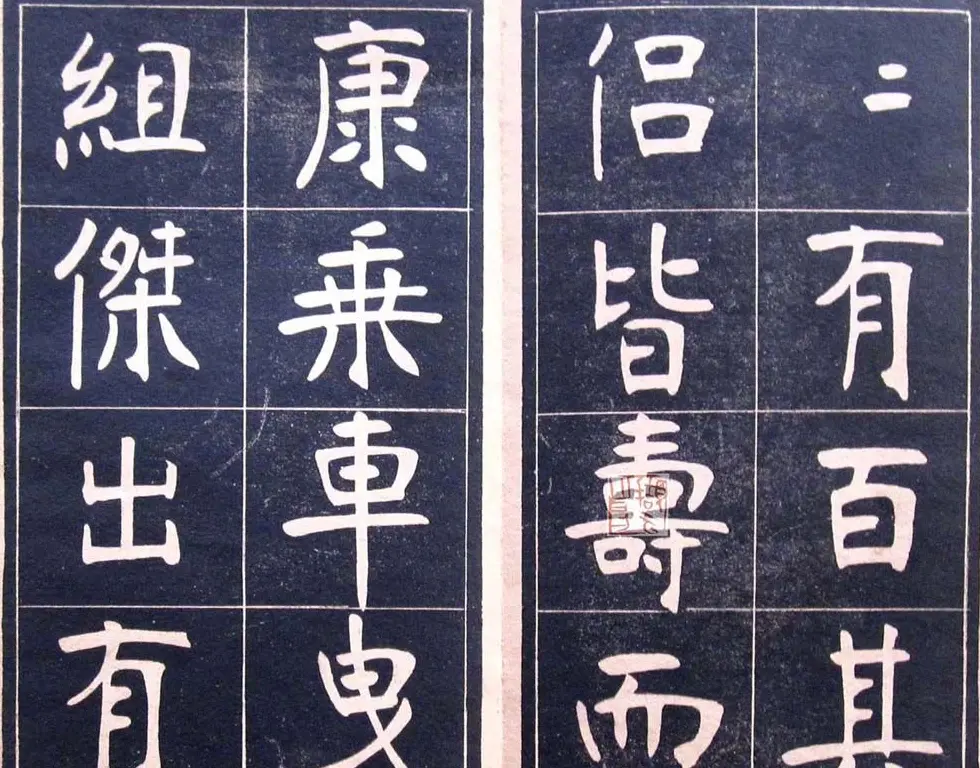 〻有百其
侣皆壽而
康乗車曳
組傑出有